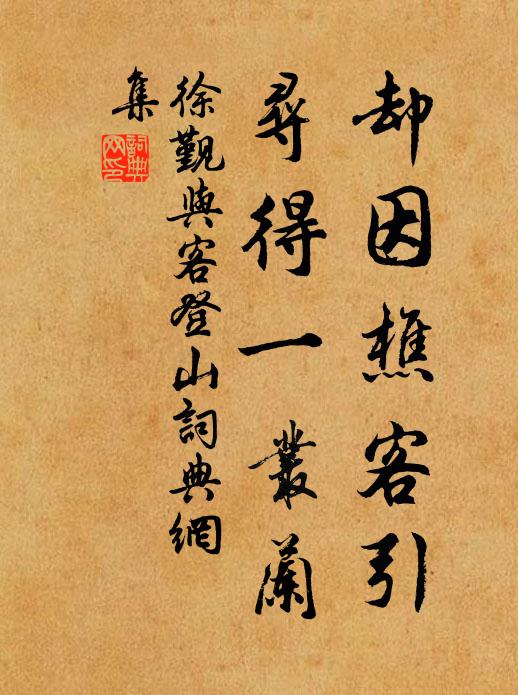 却因樵客引
尋得一叢蘭
徐觀與客登山詞典網
集
詞典
网印